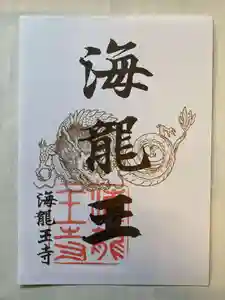 海龍王
海龍王寺